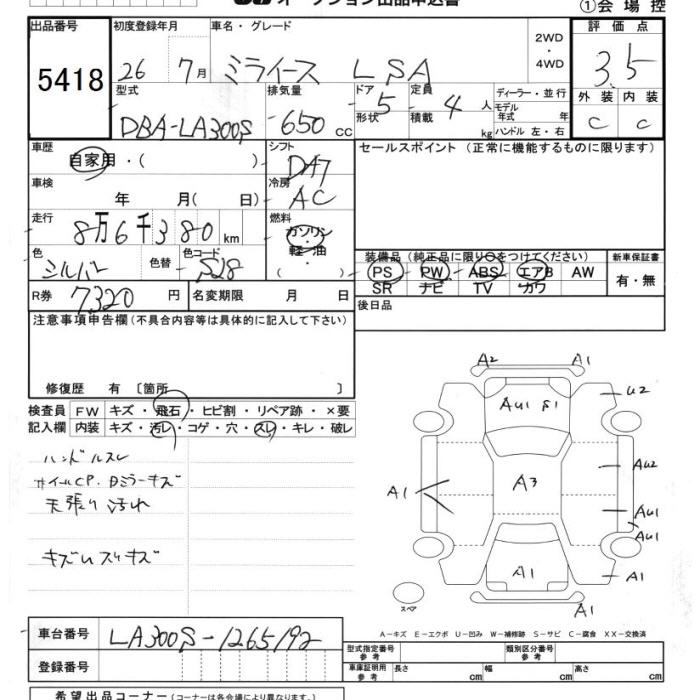 オークション出品申込書
①会場控
出品番号
5418
初度登録年月
26 7月
車名・グレード
ミライース LSA
2WD
・
4WD
評価点
3.5
外装 内装
C C
型式
DBA-LA300S
排気量
650 CC
ドア
5
形状
定員
4 人
積載 kg
ディーラー・並行
モデル
年式 年
ハンドル 左・右
車歴
自家用・( )
シフト
DA7
セールスポイント (正常に機能するものに限ります)
車検
年 月( 日)
冷房
AC
走行
8万6千380 km
燃料
ガソリン
軽・油
( )
色
シルバー
色替
色コード
S28
装備品 (純正品に限り○をつけてください)
PS PW ABS エアB AW
SR ナビ TV カワ
新車保証書
有・無
R券
7,320 円
名変期限 月 日
後日品
注意事項申告欄(不具合内容等は具体的に記入して下さい)
修復歴 有 〔箇所 〕
検査員
記入欄
FW キズ・飛石・ヒビ割・リペア跡・×要
内装 キズ・汚レ・コゲ・穴・スレ・キレ・破レ
ハンドルスレ
ホイールCP. Dミラーキズ
天張り汚れ
キズUスリキズ
A2 A1
AU1 S1
U2
A3
AU2
A1
AU1
AU1
A1
A1
A1
スペア
A-キズ E-エクボ U-凹み W-補修跡 S-サビ C-腐食 XX-交換済
車台番号
LA300S-1265192
登録番号
型式指定番号
参考
類別区分番号
参考
車庫証明用
参考
長さ cm 幅 cm 高さ cm
希望出品コーナー(コーナーは各会場により異なります。)